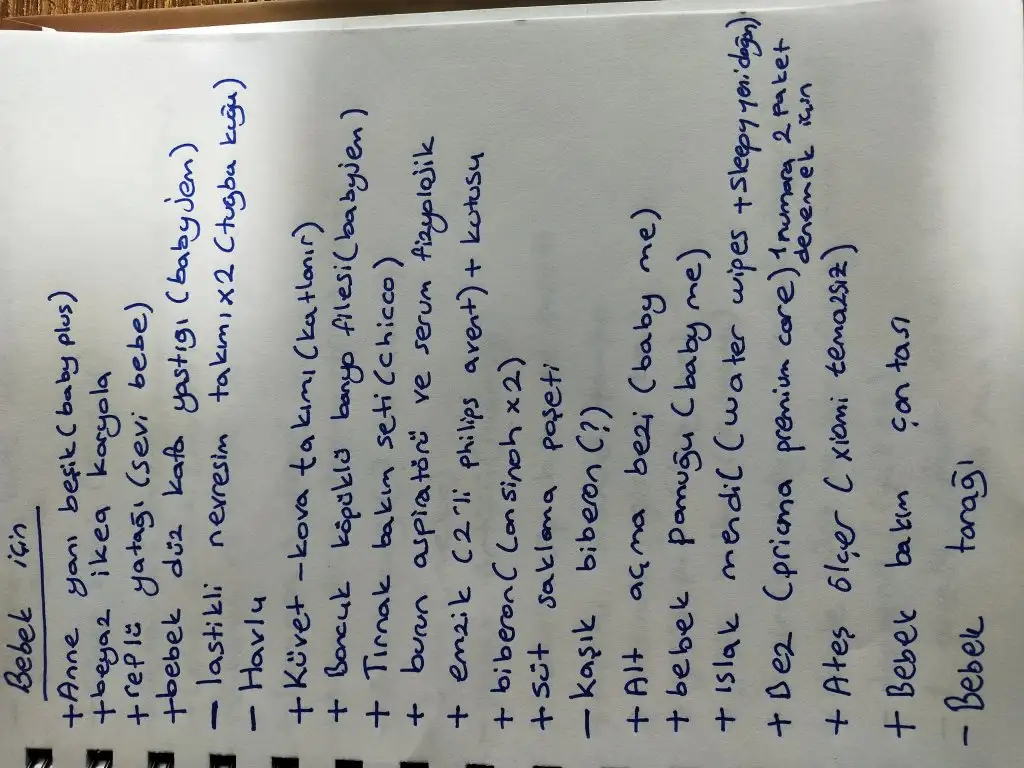 Bebek için
+Anne yanı beşik (baby plus)
+beyaz ikea karyola
+reflü yatağı (sevi bebe)
+bebek düz kafa yastığı (babyjem)
- lastikli nevresim takımı x2 (tugba kuğu)
- Havlu
+Küvet-kova takımı (katlanır)
+ Boncuk köpüklü banyo filesi (babyjem)
+ Tırnak bakım seti (chicco)
+ burun aspiratörü ve serum fizyolojik
+ emzik (2'li philips avent) + kutusu
+ biberon (Lansinoh x2)
+süt saklama poşeti
- Kaşık biberon (?)
+ Alt açma bezi (baby me)
+ bebek pamuğu (baby me)
+ Islak mendil (water wipes + sleepy yenidoğan)
+ Bez (prima premium care) 1 numara 2 paket
denemek için
+ Ateş ölçer (xiomi temazsız)
+ Bebek bakım çantası
- Bebek tarağı